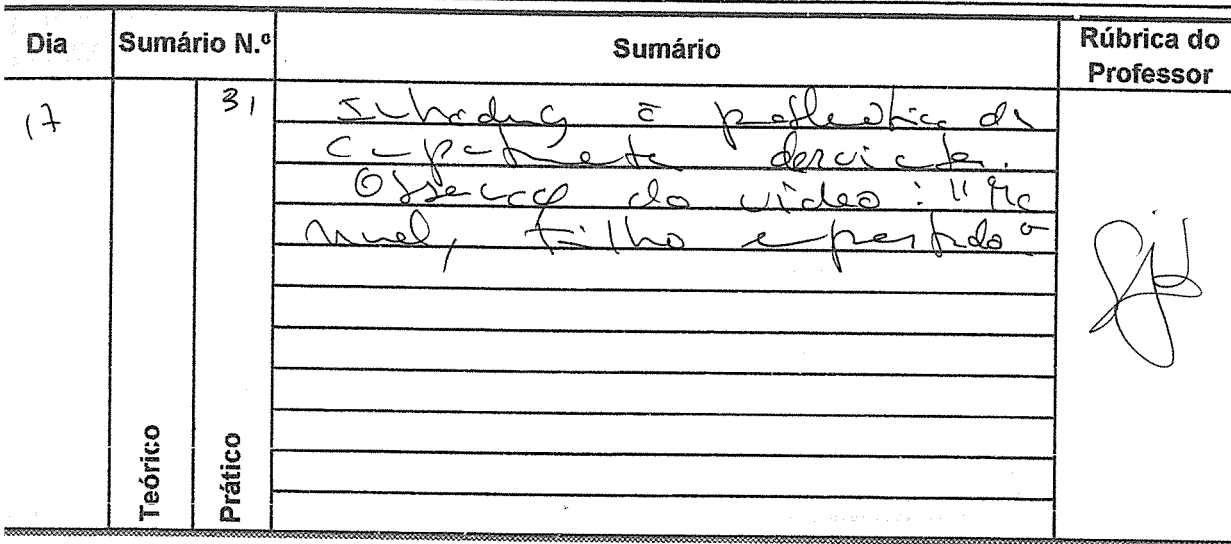 Dia Sumário N.º Sumário Rúbrica do Professor
17 31 Introdução à problemática do
comportamento desviante.
Observação do vídeo: "Ma
nuel, filho emprestado"
Teórico Prático